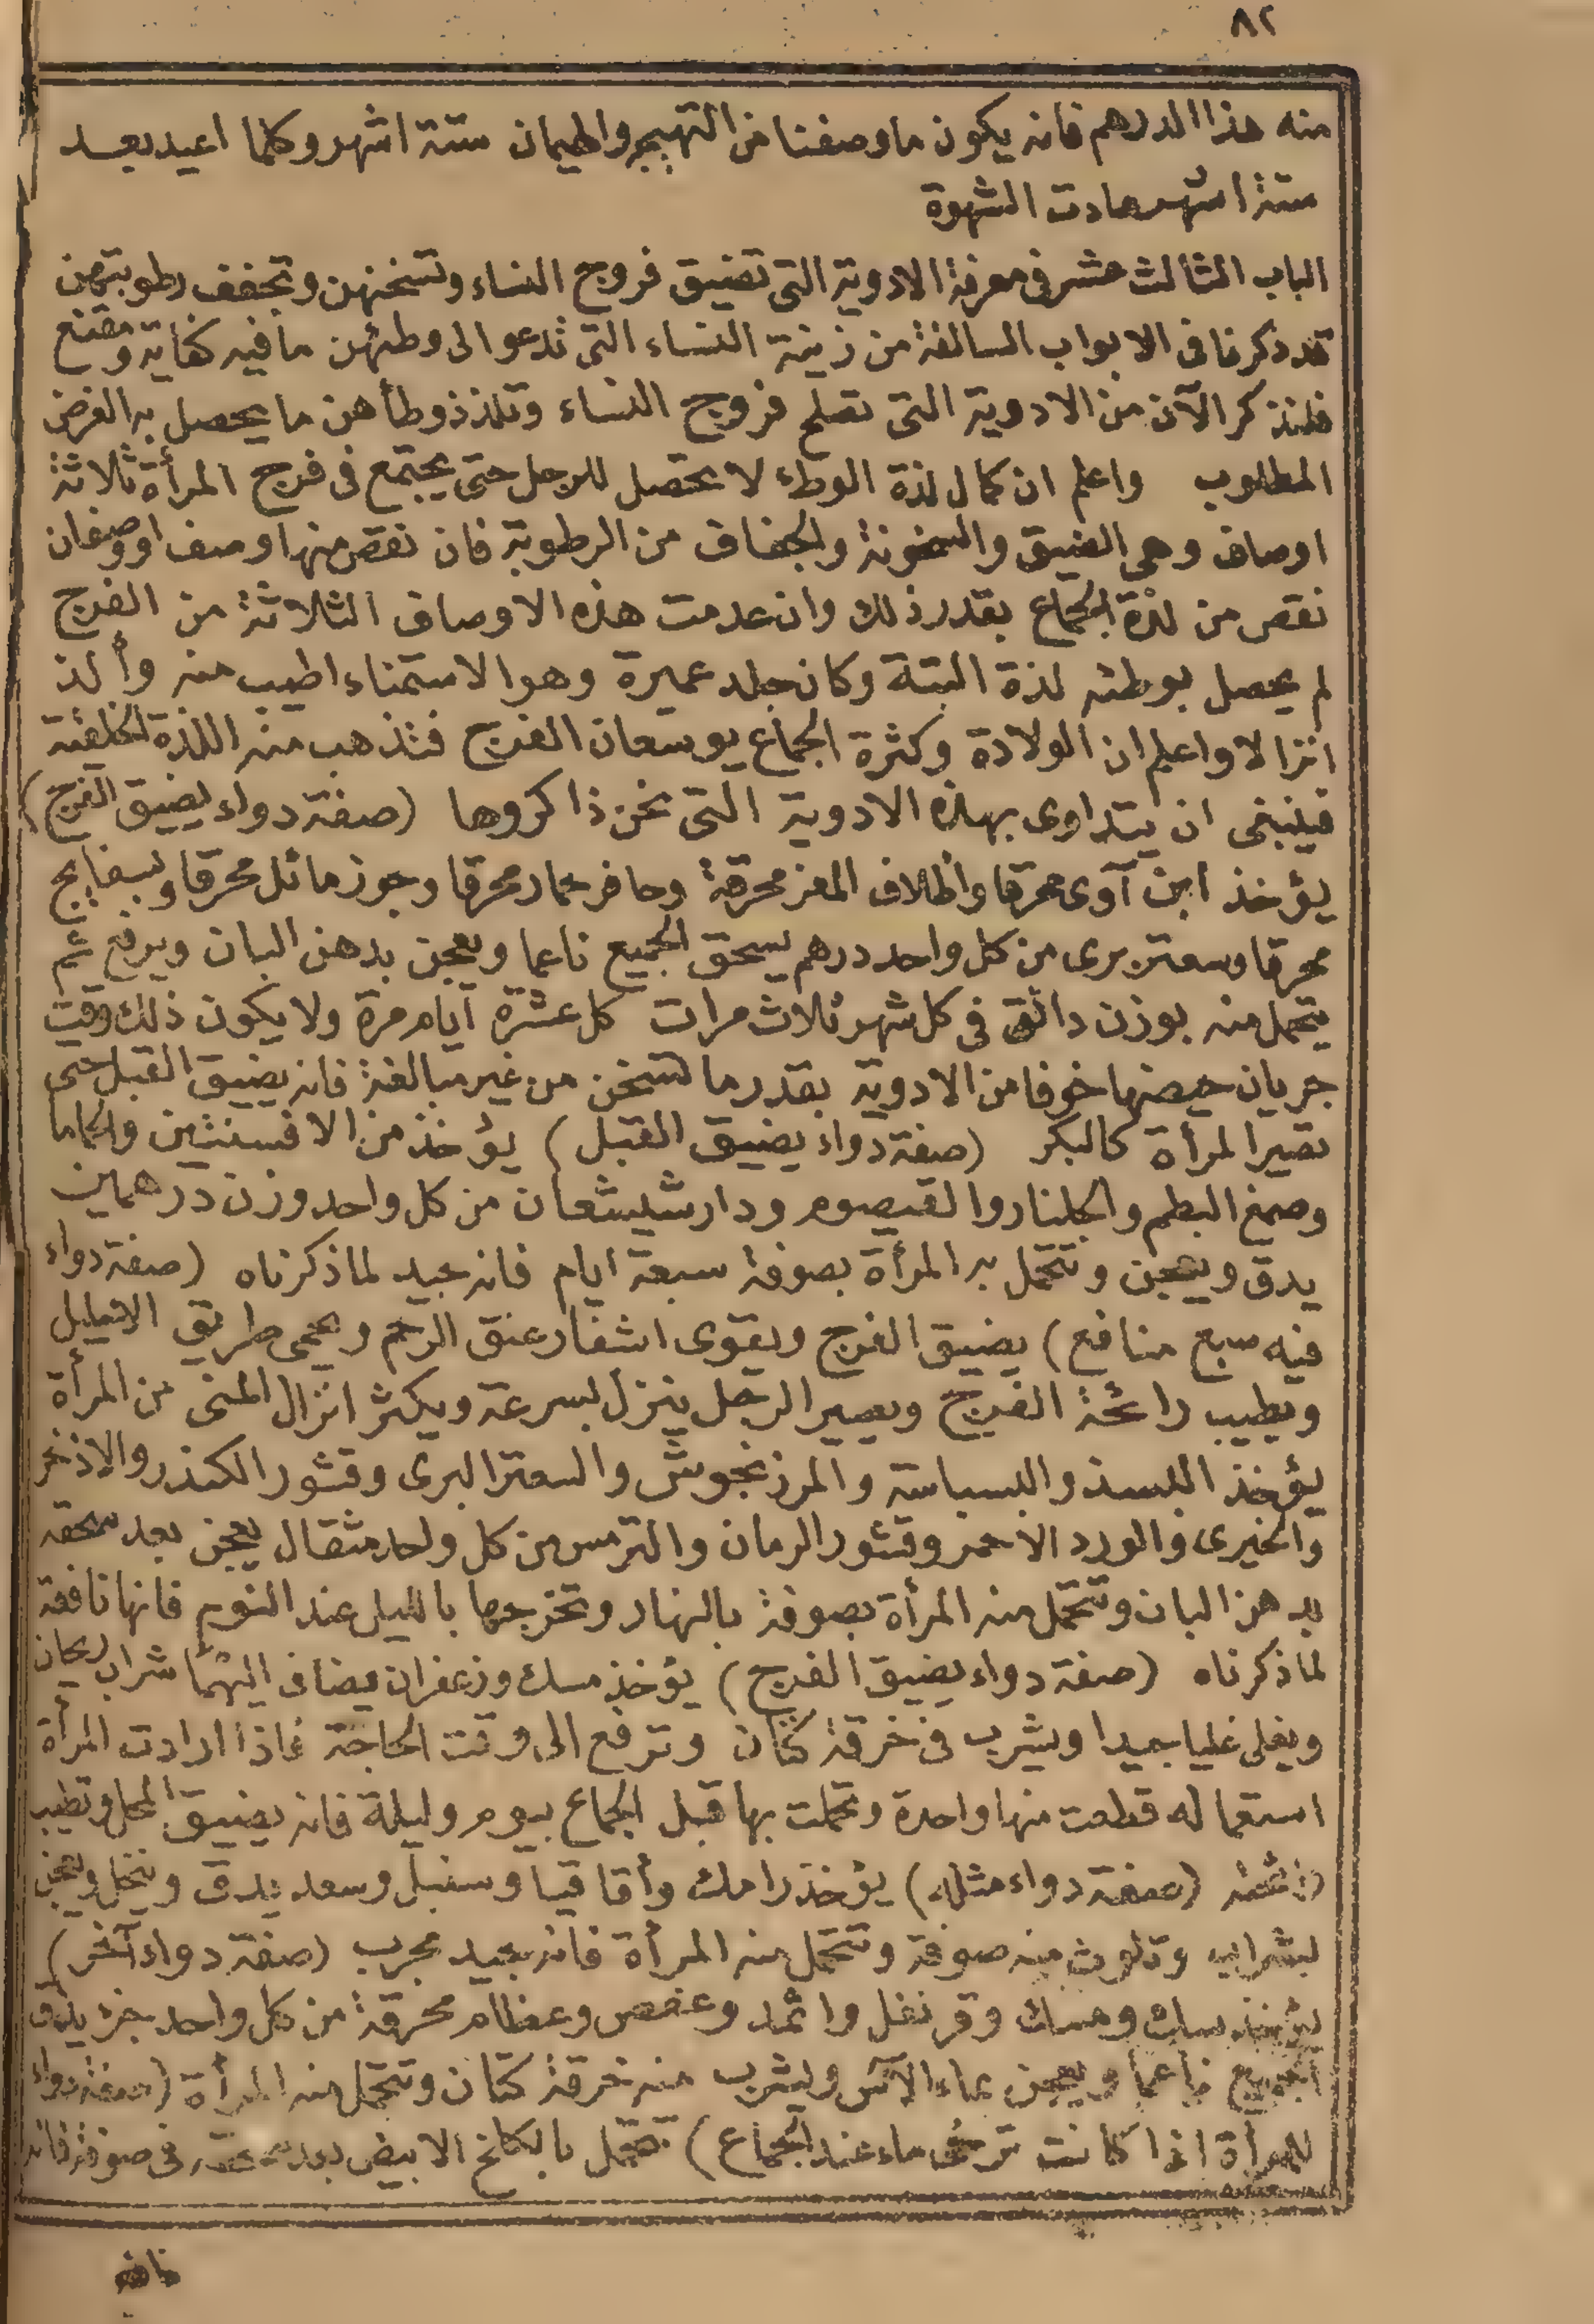 ٨٢
منه هذا الدرهم فانه يكون ما وصفنا من التهييج والهيمان ستة اشهر وكلما اعيد بعد
ستة اشهر عادت الشهوة
الباب الثالث عشر فى معرفة الادوية التى تضيق فروج النساء وتسخنهن وتجفف رطوبتهن
قد ذكرنا فى الابواب السالفة من زينة النساء التى تدعو الى وطئهن ما فيه كفاية ومقنع
فلنذكر الآن من الادوية التى تصلح فروج النساء وتلذذ وطأهن ما يحصل به الغرض
المطلوب واعلم ان كمال لذة الوطء لا يحصل للرجل حتى يجتمع فى فرج المرأة ثلاثة
اوصاف وهى الضيق والسخونة والجفاف من الرطوبة فان نقص منها وصف او وصفان
نقص من لذة الجماع بقدر ذلك وان عدمت هذه الاوصاف الثلاثة من الفرج
لم يحصل بوطئه لذة البتة وكان جلد عميرة وهو الاستمناء اطيب منه وألذ
انزالا واعلم ان الولادة وكثرة الجماع يوسعان الفرج فتذهب منه اللذة الخلقية
فينبغى ان يتداوى بهذه الادوية التى نحن ذاكروها (صفة دواء يضيق الفرج)
يؤخذ ابن آوى محرقا واظلاف المعز محرقة وحافر حمار محرقا وجوز ماثل محرقا وبسفايج
محرقا وسعتر برى من كل واحد درهم يسحق الجميع ناعما ويعجن بدهن البان ويرفع ثم
يتحمل منه بوزن دانق فى كل شهر ثلاث مرات كل عشرة آيام مرة ولا يكون ذلك وقت
جريان حيضها خوفا من الادوية بقدر ما تسخن من غير مبالغة فانه يضيق القبل حتى
تصير المرأة كالبكر (صفة دواء يضيق القبل) يؤخذ من الافسنتين والحاما
وصمغ البطم والجلنار والقيصوم ودارشيشعان من كل واحد وزن درهمين
يدق ويعجن وتتحمل به المرأة بصوفة سبعة ايام فانه جيد لما ذكرناه (صفة دواء
فيه سبع منافع) يضيق الفرج ويقوى اشفار عنق الرحم ويحمى طريق الاحليل
ويطيب رائحة الفرج ويصير الرجل ينزل بسرعة ويكثر انزال المنى من المرأة
يؤخذ البسذ والبسباسة والمرزنجوش والسعتر البرى وقشور الكندر والاذخر
والخيرى والورد الاحمر وقشور الرمان والترمس من كل واحد مثقال يعجن بعد سحقه
بدهن البان وتتحمل منه المرأة بصوفة بالنهار وتخرجها بالليل عند النوم فانها نافعة
لما ذكرناه (صفة دواء يضيق الفرج) يؤخذ مسك وزعفران يضاف اليهما شراب ريحان
ويغلى غليا جيدا ويشرب فى خرقة كتان وترفع الى وقت الحاجة فاذا ارادت المرأة
استعماله قطعت منها واحدة وتحملت بها قبل الجماع بيوم وليلة فانه يضيق المحل ويطيب
رائحته (صفة دواء مثله) يؤخذ رامك وأقاقيا وسنبل وسعد يدق وينخل ويعجن
بشراب وتلوث منه صوفة وتتحمل منه المرأة فانه جيد مجرب (صفة دواء آخر)
يؤخذ سك ومسك وقرنفل واثمد وعفص وعظام محرقة من كل واحد جزء يدق
الجميع ناعما ويعجن بماء الآس ويشرب منه خرقة كتان وتتحمل منه المرأة (صفة دواء
للمرأة اذا كانت ترخى ماء عند الجماع) تتحمل بالكلخ الابيض بعد سحقه فى صوفة فانه